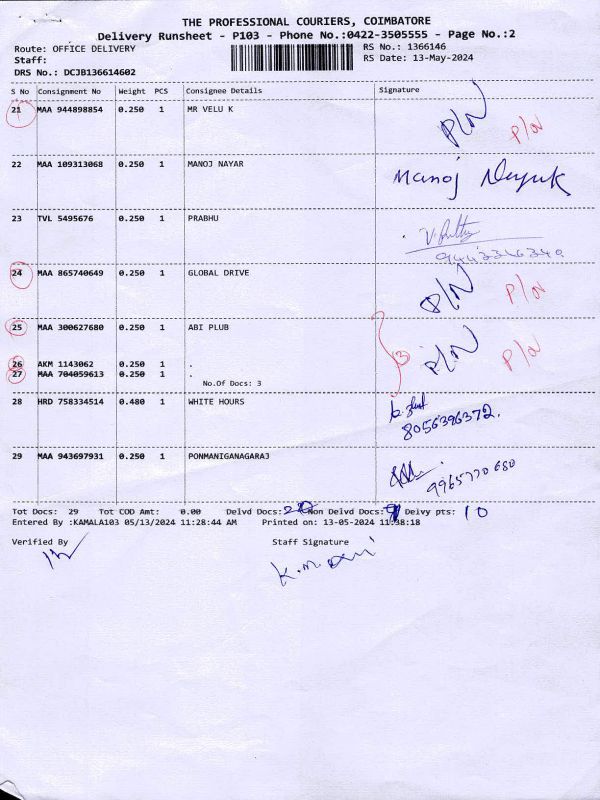 THE PROFESSIONAL COURIERS, COIMBATORE
Delivery Runsheet - P103 - Phone No.:0422-3505555 - Page No.:2
Route: OFFICE DELIVERY RS No.: 1366146
Staff: RS Date: 13-May-2024
DRS No.: DCJB136614602
S No Consignment No Weight PCS Consignee Details Signature
21 MAA 944898854 0.250 1 MR VELU K P/N P/N
22 MAA 109313068 0.250 1 MANOJ NAYAR Manoj
23 TVL 5495676 0.250 1 PRABHU
9443346340
24 MAA 865740649 0.250 1 GLOBAL DRIVE P/N P/N
25 MAA 300627680 0.250 1 ABI PLUB P/N P/N
26 AKM 1143062 0.250 1 . 3
27 MAA 704059613 0.250 1 .
No.Of Docs: 3
28 HRD 758334514 0.480 1 WHITE HOURS
8056396372.
29 MAA 943697931 0.250 1 PONMANIGANAGARAJ
9965770680
Tot Docs: 29 Tot COD Amt: 0.00 Delvd Docs: 20 Non Delvd Docs: 9 Delvy pts: 10
Entered By :KAMALA103 05/13/2024 11:28:44 AM Printed on: 13-05-2024 11:38:18
Verified By Staff Signature